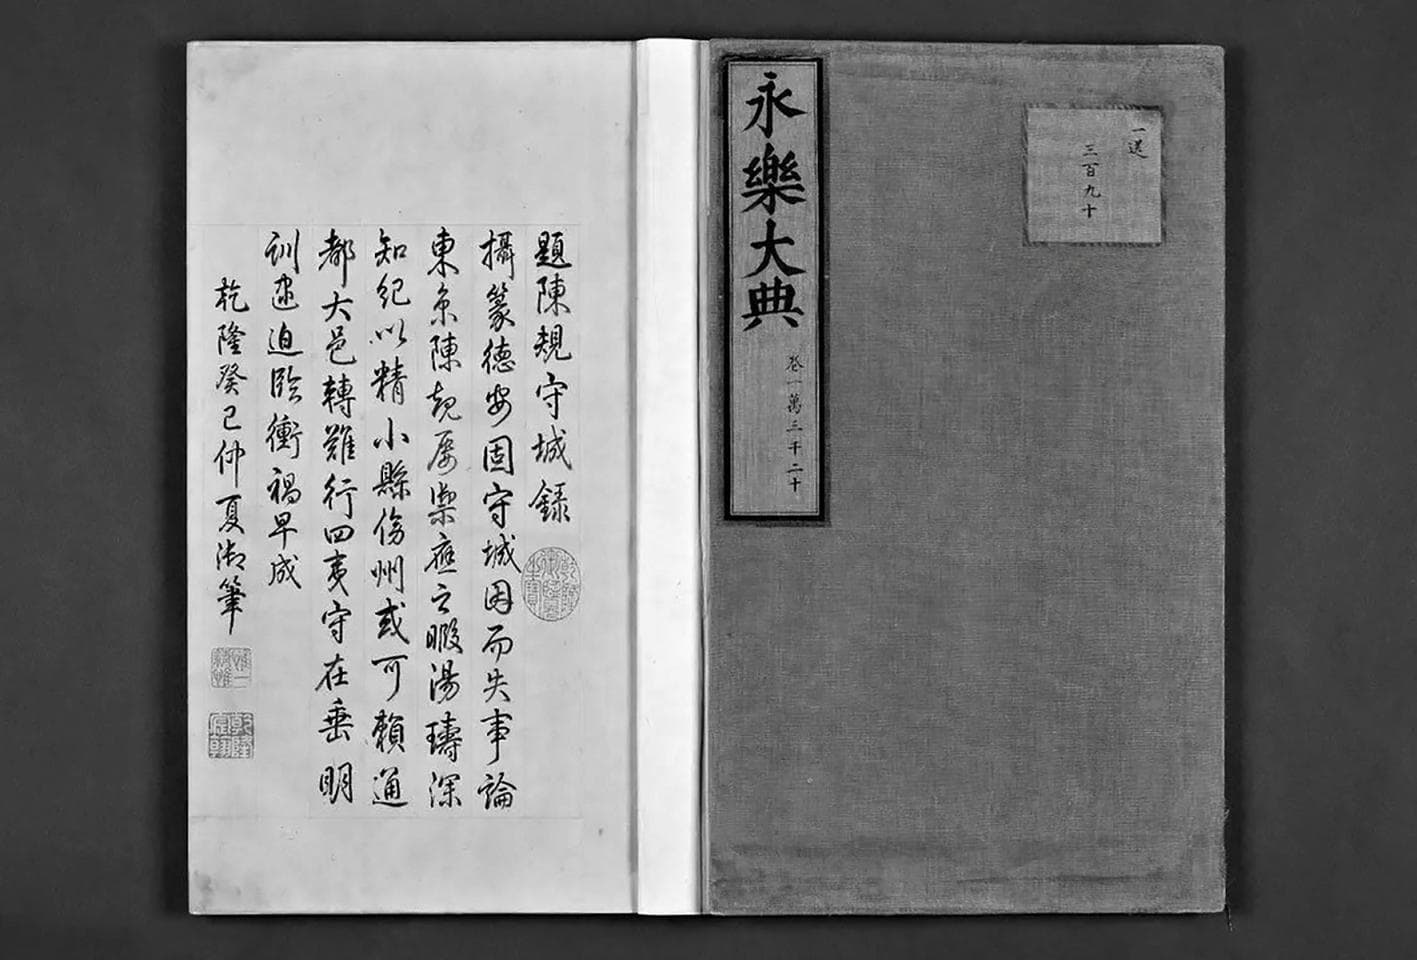 一送
三百九十
永樂大典 卷一萬三千二十
題陳規守城録
攝篆德安固守城因而失事論
東京陳規屡禦應之暇湯璹深
知紀以精小縣傍州或可賴通
都大邑轉難行四夷守在垂明
訓逮迫臨衝禍早成
乾隆癸巳仲夏御筆
惟精惟一
乾隆宸翰